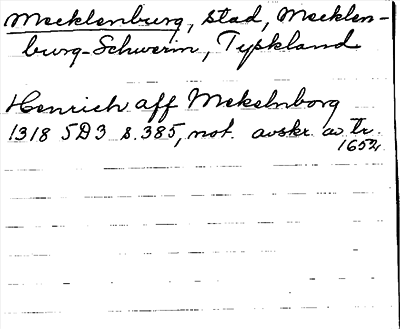 Mecklenburg, stad, Mecklen-
burg-Schwerin, Tyskland
Henrich aff Mekelnborg
1318 SD3 s. 385, not. avskr. av tr.
1652